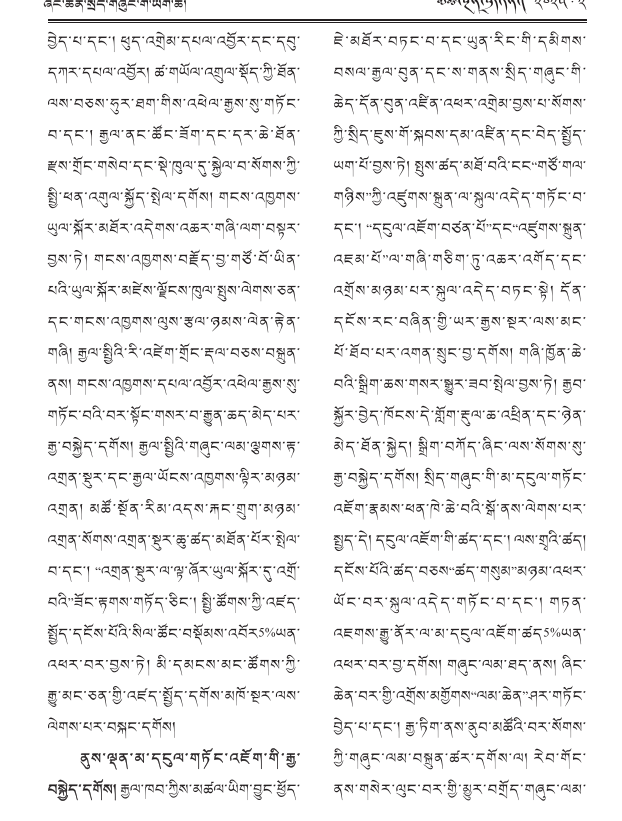 ཞིང་ཆེན་སྲིད་གཞུང་གི་ཡིག་ཆ།
བྱེད་པ་དང་། ཕུད་འགྲེམ་དཔལ་འབྱོར་དང་དབུ་
དཀར་དཔལ་འབྱོར། ཚ་གཡོལ་འགྲུལ་སྡོད་ཀྱི་ཐོན་
ལས་བཅས་ཧུར་ཐག་གིས་འཕེལ་རྒྱས་སུ་གཏོང་
བ་དང་། རྒྱལ་ནང་ཚོང་ཟོག་དང་དར་ཆེ་ཐོན་
རྫས་གྲོང་གསེབ་དང་སྡེ་ཁུལ་དུ་སྐྱེལ་བ་སོགས་ཀྱི་
སྤྱི་ཕན་འགུལ་སྐྱོད་སྤེལ་དགོས། གངས་འཁྱགས་
ཡུལ་སྐོར་མཐོར་འདེགས་འཆར་གཞི་ལག་བསྟར་
བྱས་ཏེ། གངས་འཁྱགས་བརྗོད་བྱ་གཙོ་བོ་ཡིན་
པའི་ཡུལ་སྐོར་མཛེས་ལྗོངས་ཁུལ་སྤུས་ལེགས་ཅན་
དང་གངས་འཁྱགས་ལུས་རྩལ་ཉམས་ལེན་རྟེན་
གཞི། རྒྱལ་སྤྱིའི་རི་འཛེག་གྲོང་རྡལ་བཅས་བསྐྲུན་
ནས། གངས་འཁྱགས་དཔལ་འབྱོར་འཕེལ་རྒྱས་སུ་
གཏོང་བའི་བར་སྟོང་གསར་བ་རྒྱུན་ཆད་མེད་པར་
རྒྱ་བསྐྱེད་དགོས། རྒྱལ་སྤྱིའི་གཞུང་ལམ་ལྕགས་རྟ་
འགྲན་སྡུར་དང་རྒྱལ་ཡོངས་འཁྱགས་ལྟིར་མཉམ་
འགྲན། མཚོ་སྔོན་རིམ་འདས་རྐང་གྲུག་མཉམ་
འགྲན་སོགས་འགྲན་སྡུར་ཆུ་ཚད་མཐོན་པོར་སྤེལ་
བ་དང་། “འགྲན་སྡུར་ལ་ལྟ་ཞོར་ཡུལ་སྐོར་དུ་འགྲོ་
བའི”ཟོང་རྟགས་གཏོད་ཅིང་། སྤྱི་ཚོགས་ཀྱི་འཛད་
སྤྱོད་དངོས་པོའི་སིལ་ཚོང་བསྡོམས་འབོར5%ཡན་
འཕར་བར་བྱས་ཏེ། མི་དམངས་མང་ཚོགས་ཀྱི་
རྒྱུ་མང་ཅན་གྱི་འཛད་སྤྱོད་དགོས་མཁོ་སྔར་ལས་
ལེགས་པར་བསྐང་དགོས།
ནུས་ལྡན་མ་དངུལ་གཏོང་འཇོག་གི་རྒྱ་
བསྐྱེད་དགོས། རྒྱལ་ཁབ་ཀྱིས་མཚལ་ཡིག་བྱང་ཕྱོད་
ཇེ་མཐོར་བཏང་བ་དང་ཡུན་རིང་གི་དམིགས་
བསལ་རྒྱལ་བུན་དང་ས་གནས་སྲིད་གཞུང་གི་
ཆེད་དོན་བུན་འཛིན་འཕར་འགྲེམ་བྱས་པ་སོགས་
ཀྱི་སྲིད་ཇུས་གོ་སྐབས་དམ་འཛིན་དང་བེད་སྤྱོད་
ཡག་པོ་བྱས་ཏེ། སྤུས་ཚད་མཐོ་བའི་ངང“གཙོ་གལ་
གཉིས”ཀྱི་འཛུགས་སྐྲུན་ལ་སྐུལ་འདེད་གཏོང་བ་
དང་། “དངུལ་འཇོག་བཙན་པོ”དང“འཛུགས་སྐྲུན་
འཇམ་པོ”ལ་གཞི་གཅིག་ཏུ་འཆར་འགོད་དང་
འགྲོས་མཉམ་པར་སྐུལ་འདེད་བཏང་སྟེ། དོན་
དངོས་རང་བཞིན་གྱི་ཡར་རྒྱས་སྔར་ལས་མང་
པོ་ཐོབ་པར་འགན་སྲུང་བྱ་དགོས། གཞི་ཁྱོན་ཆེ་
བའི་སྒྲིག་ཆས་གསར་སྒྱུར་ཟབ་སྤེལ་བྱས་ཏེ། རྒྱབ་
སྐྱོར་བྱེད་ཁོངས་དེ་གློག་རྡུལ་ཆ་འཕྲིན་དང་ཉེན་
མེད་ཐོན་སྐྱེད། སྒྲིག་བཀོད་ཞིང་ལས་སོགས་སུ་
རྒྱ་བསྐྱེད་དགོས། སྲིད་གཞུང་གི་མ་དངུལ་གཏོང་
འཇོག་རྣམས་ཕན་ཁེ་ཆེ་བའི་སྒོ་ནས་ལེགས་པར་
སྤྱད་དེ། དངུལ་འཇོག་གི་ཚད་དང་། ལས་གྲྭའི་ཚད།
དངོས་པོའི་ཚད་བཅས“ཚད་གསུམ”མཉམ་འཕར་
ཡོང་བར་སྐུལ་འདེད་གཏོང་བ་དང་། གཏན་
འཇགས་རྒྱུ་ནོར་ལ་མ་དངུལ་འཇོག་ཚད5%ཡན་
འཕར་བར་བྱ་དགོས། གཞུང་ལམ་ཐད་ནས། ཞིང་
ཆེན་བར་གྱི་འགྲོས་མགྱོགས“ལམ་ཆེན”ཤར་གཏོང་
བྱེད་པ་དང་། རྒྱ་ཏིག་ནས་ནུབ་མཚོའི་བར་སོགས་
ཀྱི་གཞུང་ལམ་བསྐྲུན་ཚར་དགོས་ལ། རེབ་གོང་
ནས་གསེར་ལུང་བར་གྱི་མྱུར་བགྲོད་གཞུང་ལམ་